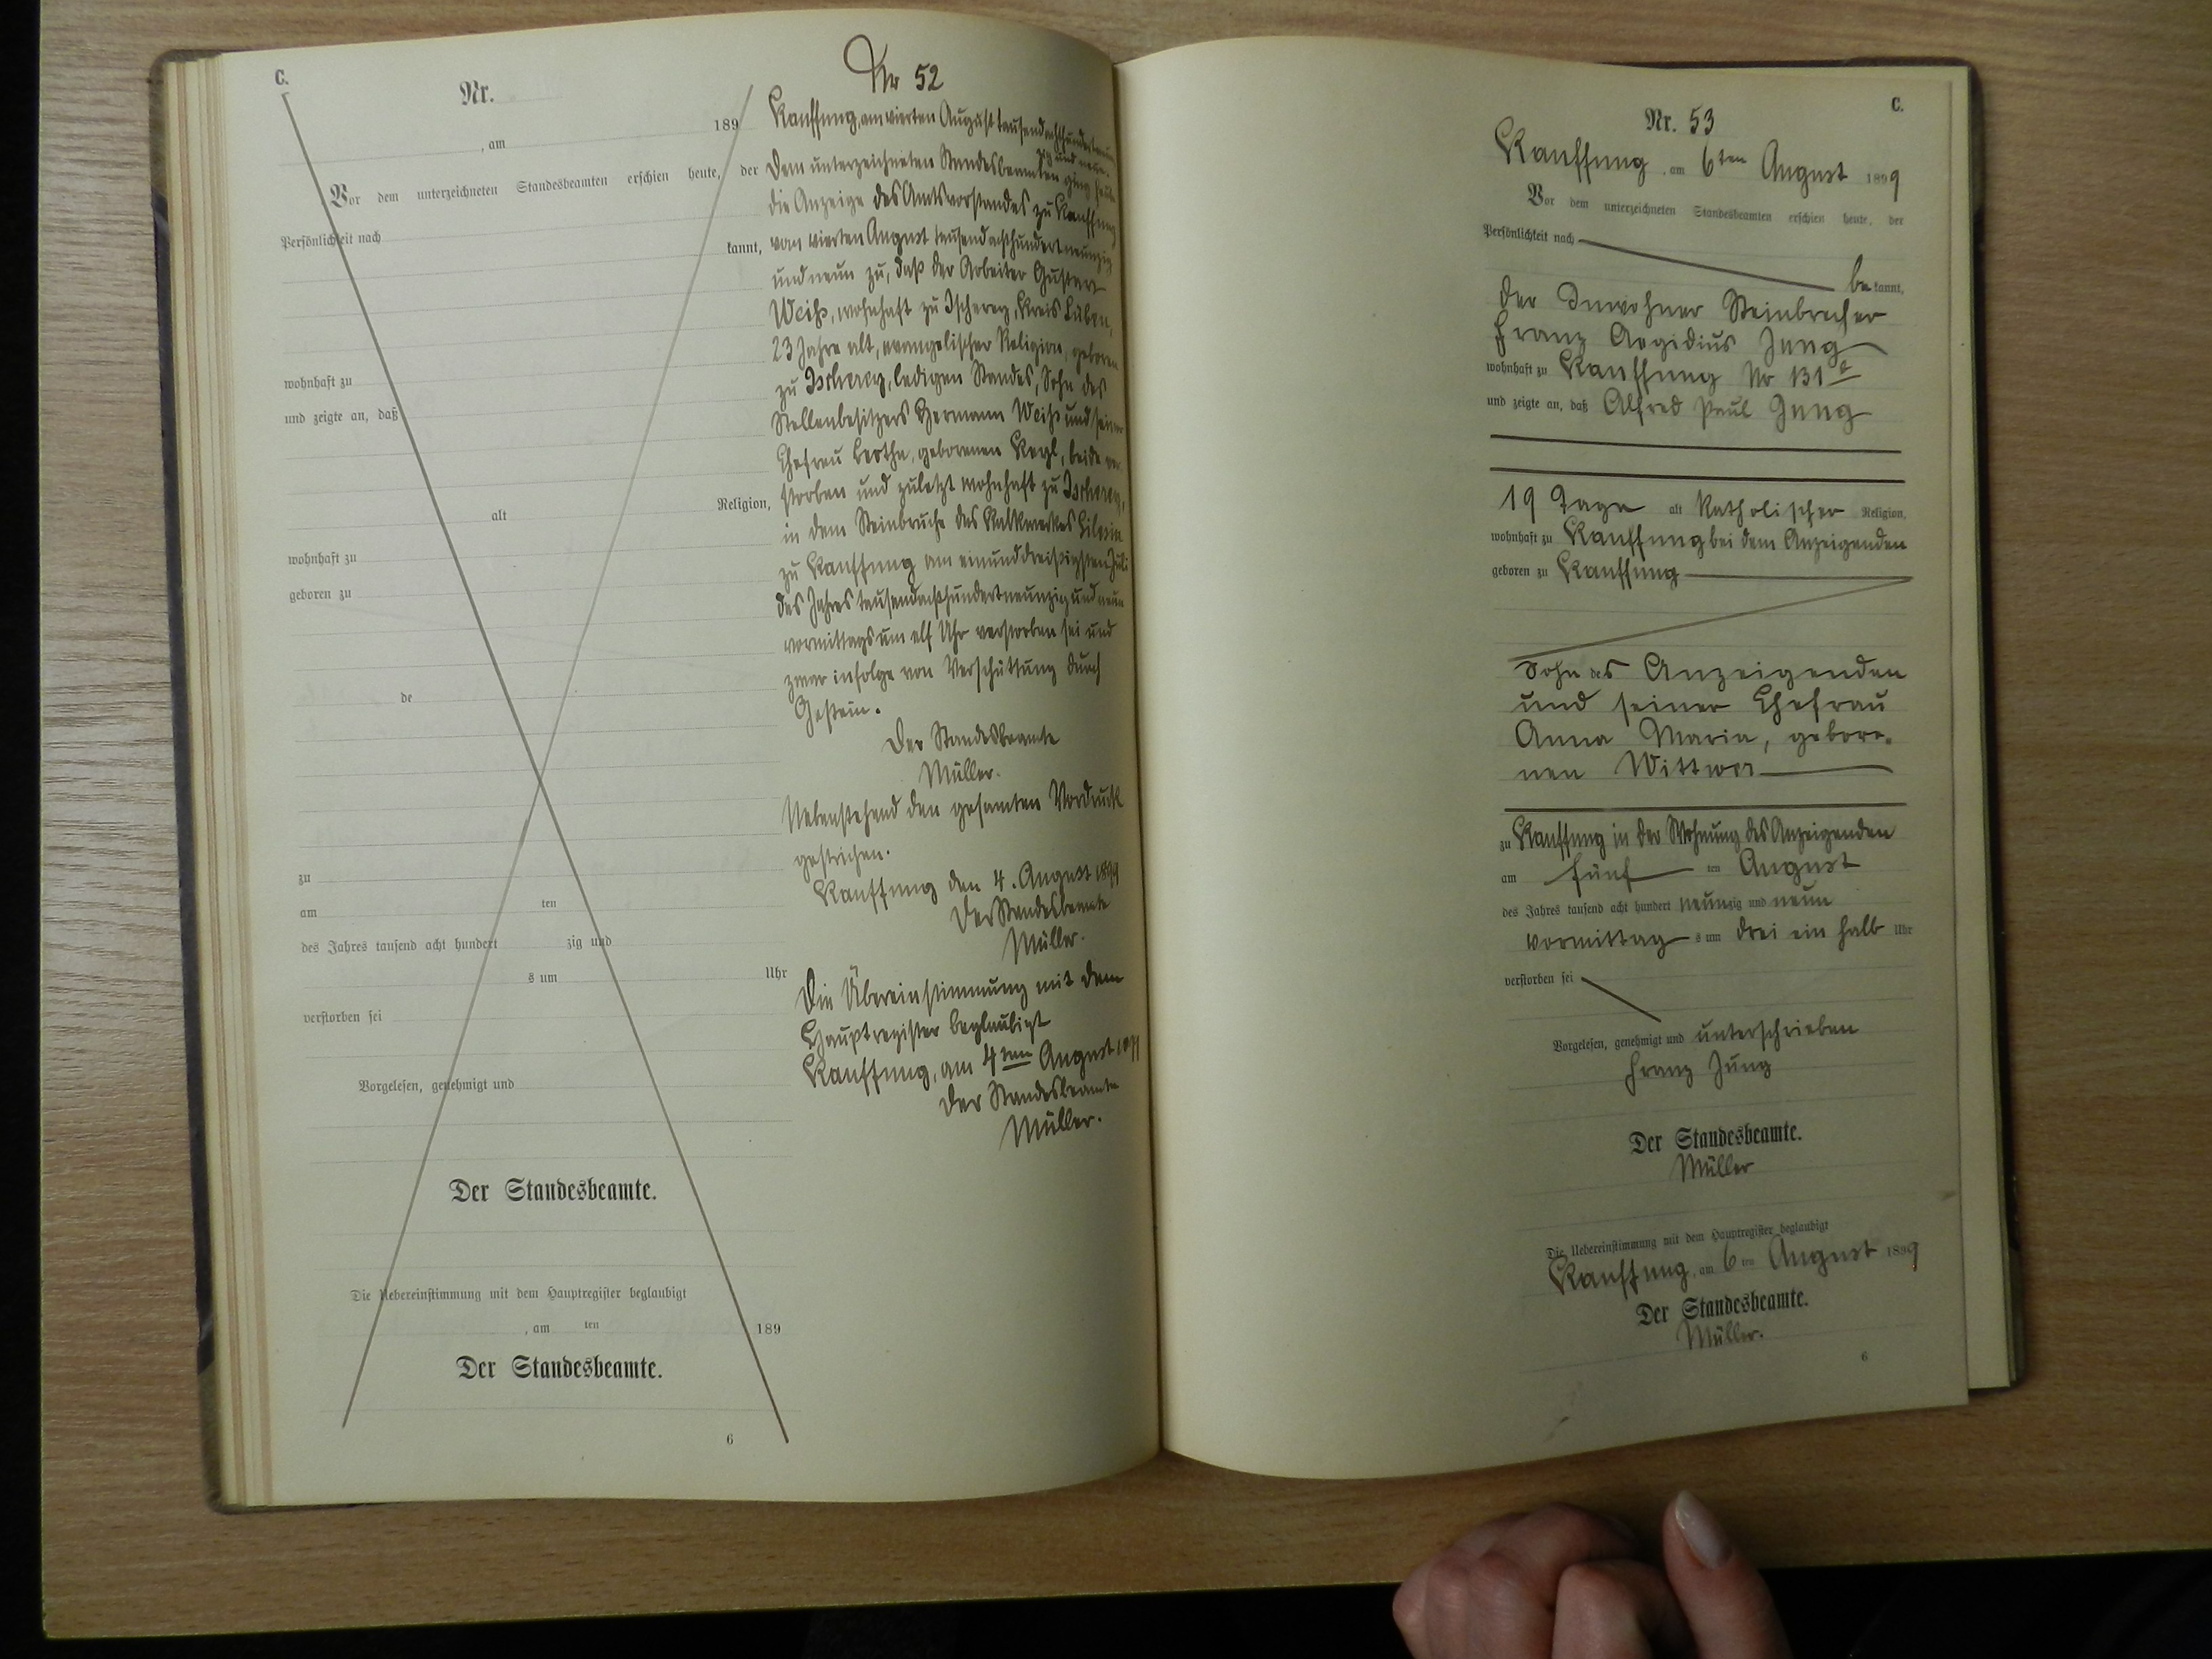 C.
Nr.
, am 189
Vor dem unterzeichneten Standesbeamten erschien heute, der
Persönlichkeit nach
kannt,
wohnhaft zu
und zeigte an, daß
alt Religion,
wohnhaft zu
geboren zu
de
zu
am ten
des Jahres tausend acht hundert zig und
s um Uhr
verstorben sei
Vorgelesen, genehmigt und
Der Standesbeamte.
Die Uebereinstimmung mit dem Hauptregister beglaubigt
, am ten 189
Der Standesbeamte.
6
Nr 52
Kauffung, am vierten August tausend achthundertneun
zig und neun.
Dem unterzeichneten Standesbeamten ging heute
die Anzeige des Amtsvorstandes zu Kauffung
vom vierten August tausend achthundert neunzig
und neun zu, daß der Arbeiter Gustav
Weiß, wohnhaft zu Kreis Lüben,
23 Jahre alt, evangelischer Religion, geboren
zu ledigen Standes, Sohn des
Stellenbesitzers Hermann Weiß und seiner
Ehefrau Berthe, geborenen beide ver
storben und zuletzt wohnhaft zu
in dem Steinbruche des Kalkwerkes Silesia
zu Kauffung am einunddreißigsten Juli
des Jahres tausendachthundertneunzig und neun
vormittags um elf Uhr verstorben sei und
zwar infolge von Verschüttung durch
Gestein.
Der Standesbeamte
Müller.
Nebenstehend den gesamten Vordruck
gestrichen.
Kauffung den 4. August 1899
Der Standesbeamte
Müller.
Die Übereinstimmung mit dem
Hauptregister beglaubigt
Kauffung, am 4ten August 1899
Der Standesbeamte
Müller.
C.
Nr. 53
Kauffung, am 6ten August 1899
Vor dem unterzeichneten Standesbeamten erschien heute, der
Persönlichkeit nach
be kannt,
der Inwohner Steinbrecher
Franz Aegidius Jung
wohnhaft zu Kauffung No 131a
und zeigte an, daß Alfred Paul Jung
19 Tage alt Katholischer Religion,
wohnhaft zu Kauffung bei dem Anzeigenden
geboren zu Kauffung
Sohn des Anzeigenden
und seiner Ehefrau
Anna Maria, gebore-
nen Wittwer
zu Kauffung in der Wohnung des Anzeigenden
am fünf ten August
des Jahres tausend acht hundert neunzig und neun
vormittag s um drei ein halb Uhr
verstorben sei
Vorgelesen, genehmigt und unterschrieben
Franz Jung
Der Standesbeamte.
Müller
Die Uebereinstimmung mit dem Hauptregister beglaubigt
Kauffung, am 6 ten August 1899
Der Standesbeamte.
Müller.
6